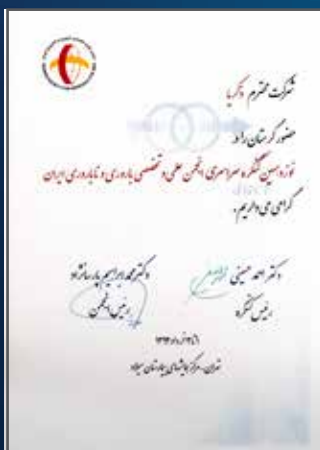 شرکت محترم زکریا
حضور گرمتان را در
نوزدهمین کنگره سراسری انجمن علمی و تخصصی باروری و ناباروری ایران
گرامی می‌داریم.
دکتر احمد حسینی
دکتر محمد ابراهیم پارسانژاد
رئیس کنگره
رئیس انجمن
تهران - مرکز همایشهای بیمارستان میلاد